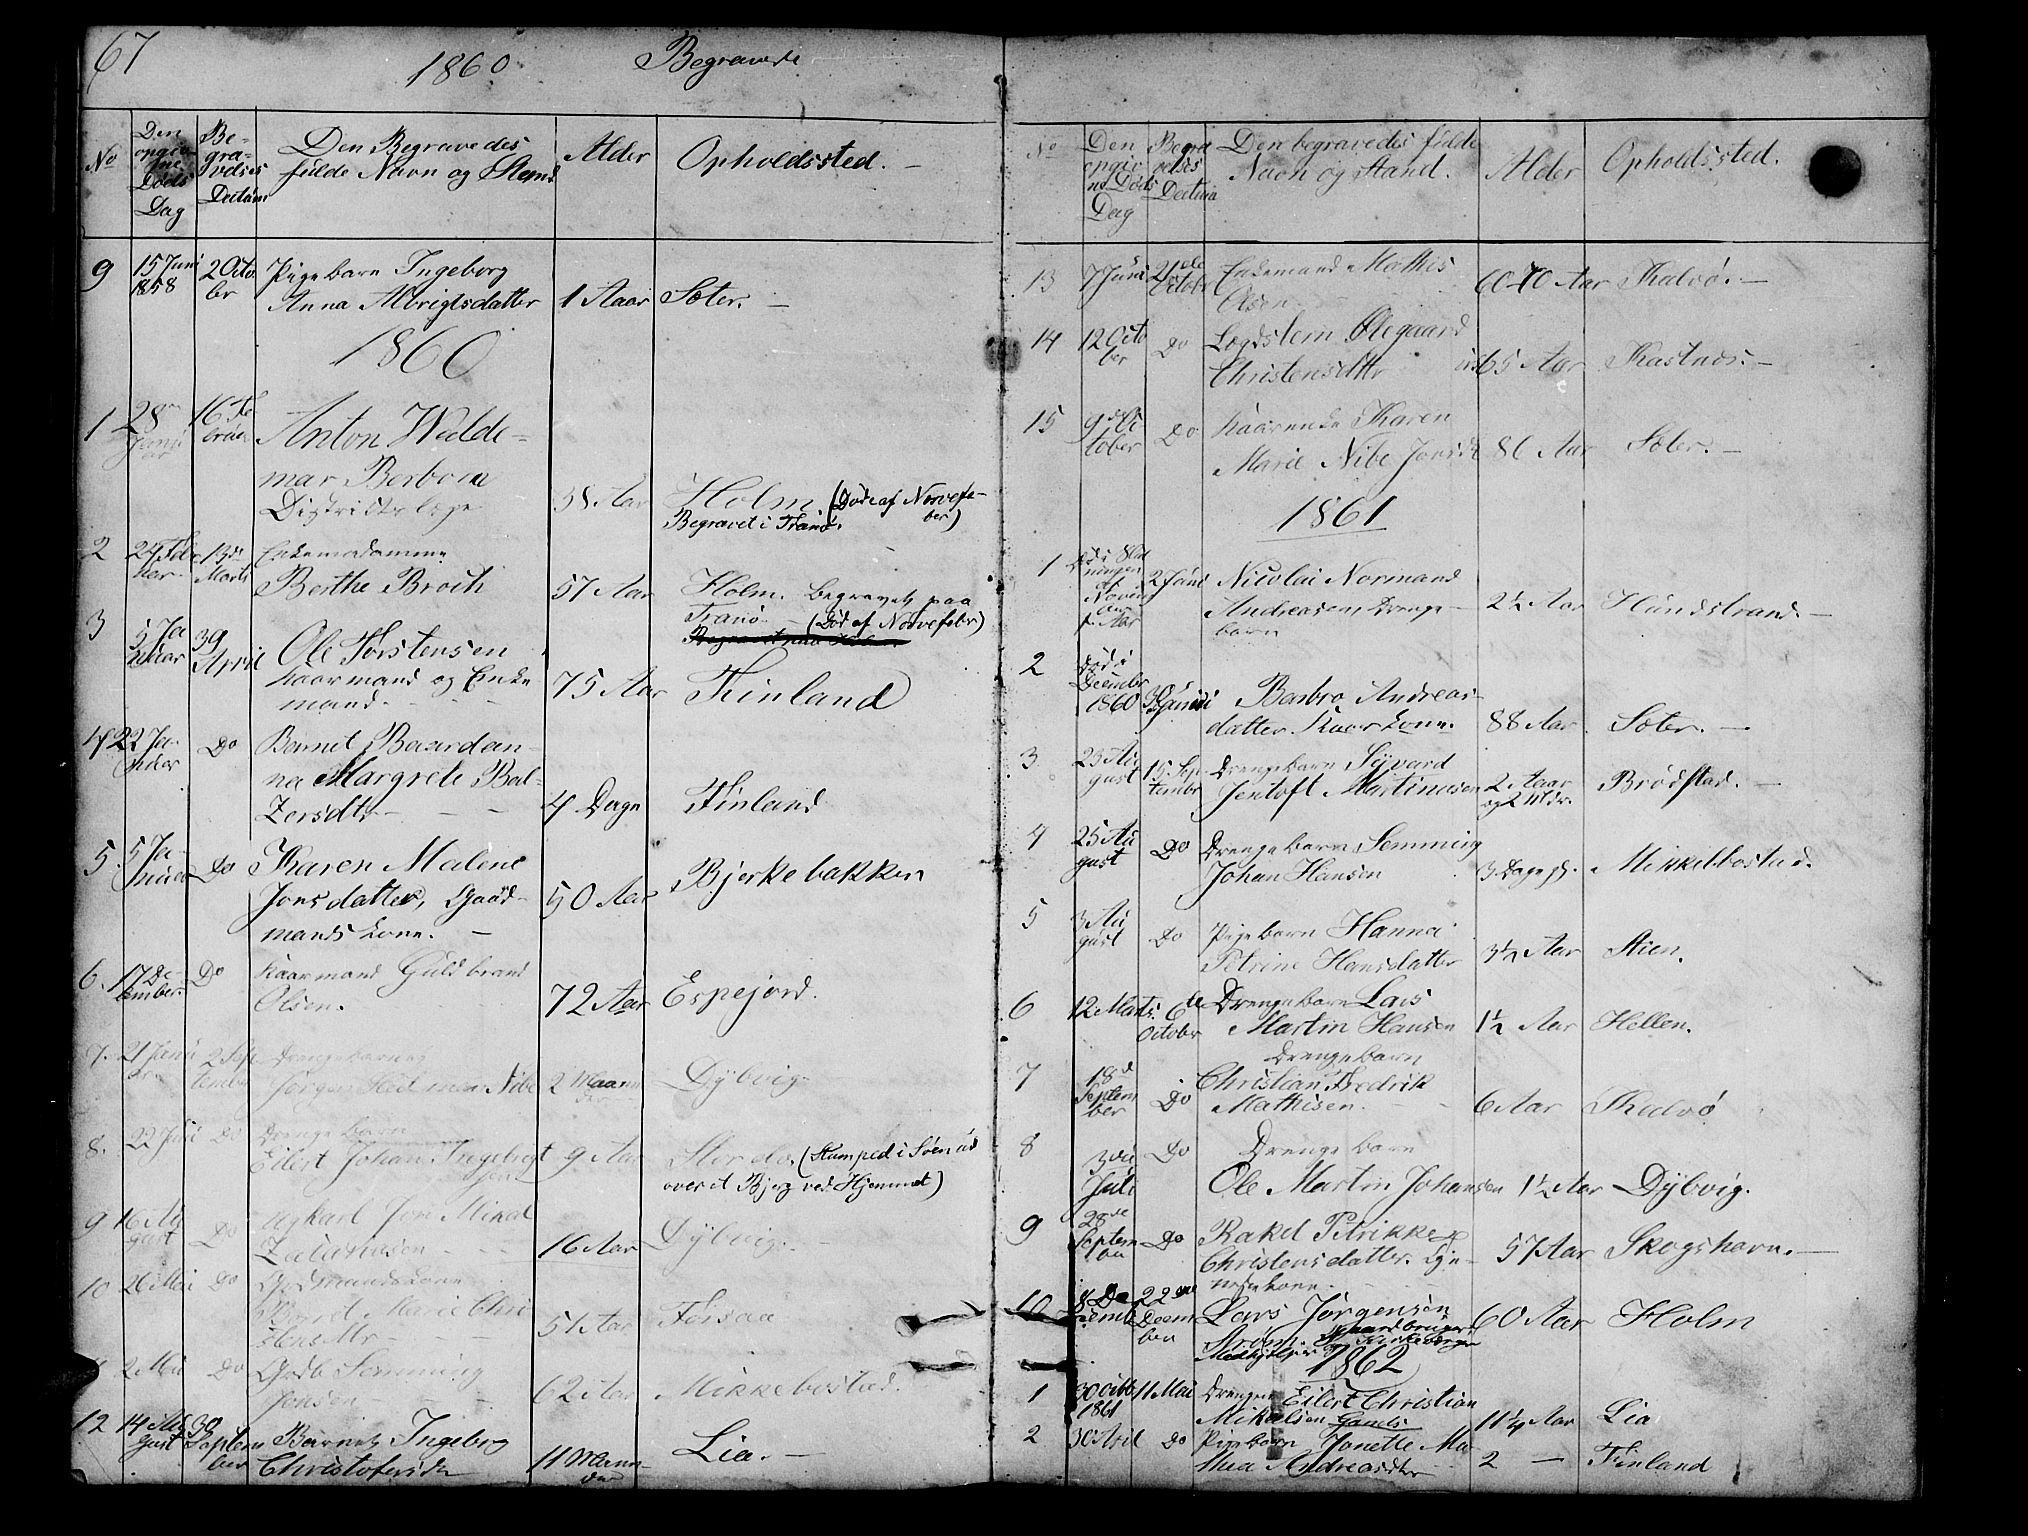 67
1860 Begravede
No
Den opgivne Døds Dag
Begravelses Datum
Den Begravedes fulde Navn og Stand
Alder
Opholdssted. -
9 15 Juni 1858 2 Octo
ber Pigebarn Ingeborg
Anna Albrigtsdatter 1 Aaar Sæter. -
1860
1 28 Januar 16 Februar Anton Walde-
mar Berbom
Districtslæge 38 Aar Holm. (Døde af Nervefe-
ber)
Begravet i Tranø.
2 24 Febr 13de Marts Enkemadamme
Berthe Broch 57 Aar Holm. Begravet paa
Tranø. - (Død af Nervefeber)
3 5 Ja
nuar 30 April Ole Torstensen
Kaarmand og Enke
mand. - 75 Aar Finland
4 22 Ja-
nuar Do Barnet Baardan-
na Margrete Bal-
zersdtr - - - 4 Dage Finland
5. 5 Ja-
nuar Do Karen Malene
Jonsdatter, Gaard-
mands Kone. - 50 Aar Bjerkebakken
6. 17 De-
cember. Do Kaarmand Guldbrand
Olsen. 72 Aar Espejord.
7. 21 Janu
ar 2 Sep
tember Drengebarnet
Jørgen Hedmar Nibe 2 Maane
der Dybvig
8. 22 Juli Do Drengebarn
Eilert Johan Ingebrigt
sen 9 Aar Slordø. (Stumped i Søen ud
over et Bjerg ved Hjemmet)
9 16 Au
gust Do Ugkarl Jon Mikal
Zakariasen - - 16 Aar Dybvig. -
10 26 Mai Do Gdmandskone
Marie Chri
stensdtr - - 51 Aar Forsaa
2 Mai Do Gdb Semming
Jonsen 62 Aar Mikkebostad.
12 14 Au
gust 30 Septem
ber Barnet Ingeborg
Christofersdtr 11 Maane-
der Lia. -
No
Den opgivne Døds Dag
Begravelses Datum
Den begravedes fulde Navn og Stand.
Alder
Opholdssted.
13 7 Juni 21de October Enkemand Mathis
Olsen 60-70 Aar Kalvø. -
14 12 Octo
ber Do Lægdslem Ølegaard
Christensdtr 65 Aar Kastnes. -
15 9de Oc
tober Do Kaarenke Karen
Marie Nibe Jonsdt 86 Aar Sæter. -
1861
1 2 Juni Nicolai Normand
Andreasen Drenge-
barn 2½ Aar Hundstrand. -
2 Død i
December
1860 Barbro Andreas-
datter Kaarkone. 88 Aar Sæter. -
3 23 Au
gust 15 Sep
tembr Drengebarn Syvard
Jentoft Martinusen 2 Aaar
og 2 Mdr. Brødstad. -
4 25 Au
gust Do Drengebarn Semming
Johan Hansen 3 Dage gl. Mikkelbostad.
5 3 Au
gust Do Pigebarn Hanna
Petrine Hansdatter 3½ Aar Stien.
6 12 Marts 6te
October Drengebarn Lars
Martin Hansen 1½ Aar Hellen.
7 18de
Septem
ber Do Drengebarn
Christian Fredrik
Mathisen. - - 6 Aar Kalvø
8 3die
Juli Do Drengebarn
Ole Martin Johansen 1½ Aar Dybvig.
9 28de
Septem
ber Do Rakel Petrikke
Christensdatter.
57 Aar Skogshavn. -
10 8 De
cemb 22de
Decem
ber Lars Jørgensen
Strøm. Gaardbruger
Medhjelper og Kirkeværge 60 Aar Holm
1862
1 30 Octbr
1861 11 Mai Drengen Eilert Christian
Mikalsen 11¼ Aar Lia
2 30 April Do Pigebarn Jonette Ma
thea Andreasdtr 2 - Finland